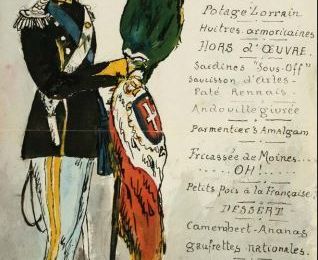 Potage Lorrain
Huîtres armoricaines
HORS d'ŒUVRE.
Sardines "Sous-Off"
Saucisson d'Arles
Paté Rennais.
Andouille givrée
Parmentiers Amalgam
Fricassée de Moines....
..... OH!.....
Petits Pois à la Française
DESSERT
Camembert-Ananas
gaufrettes nationales.